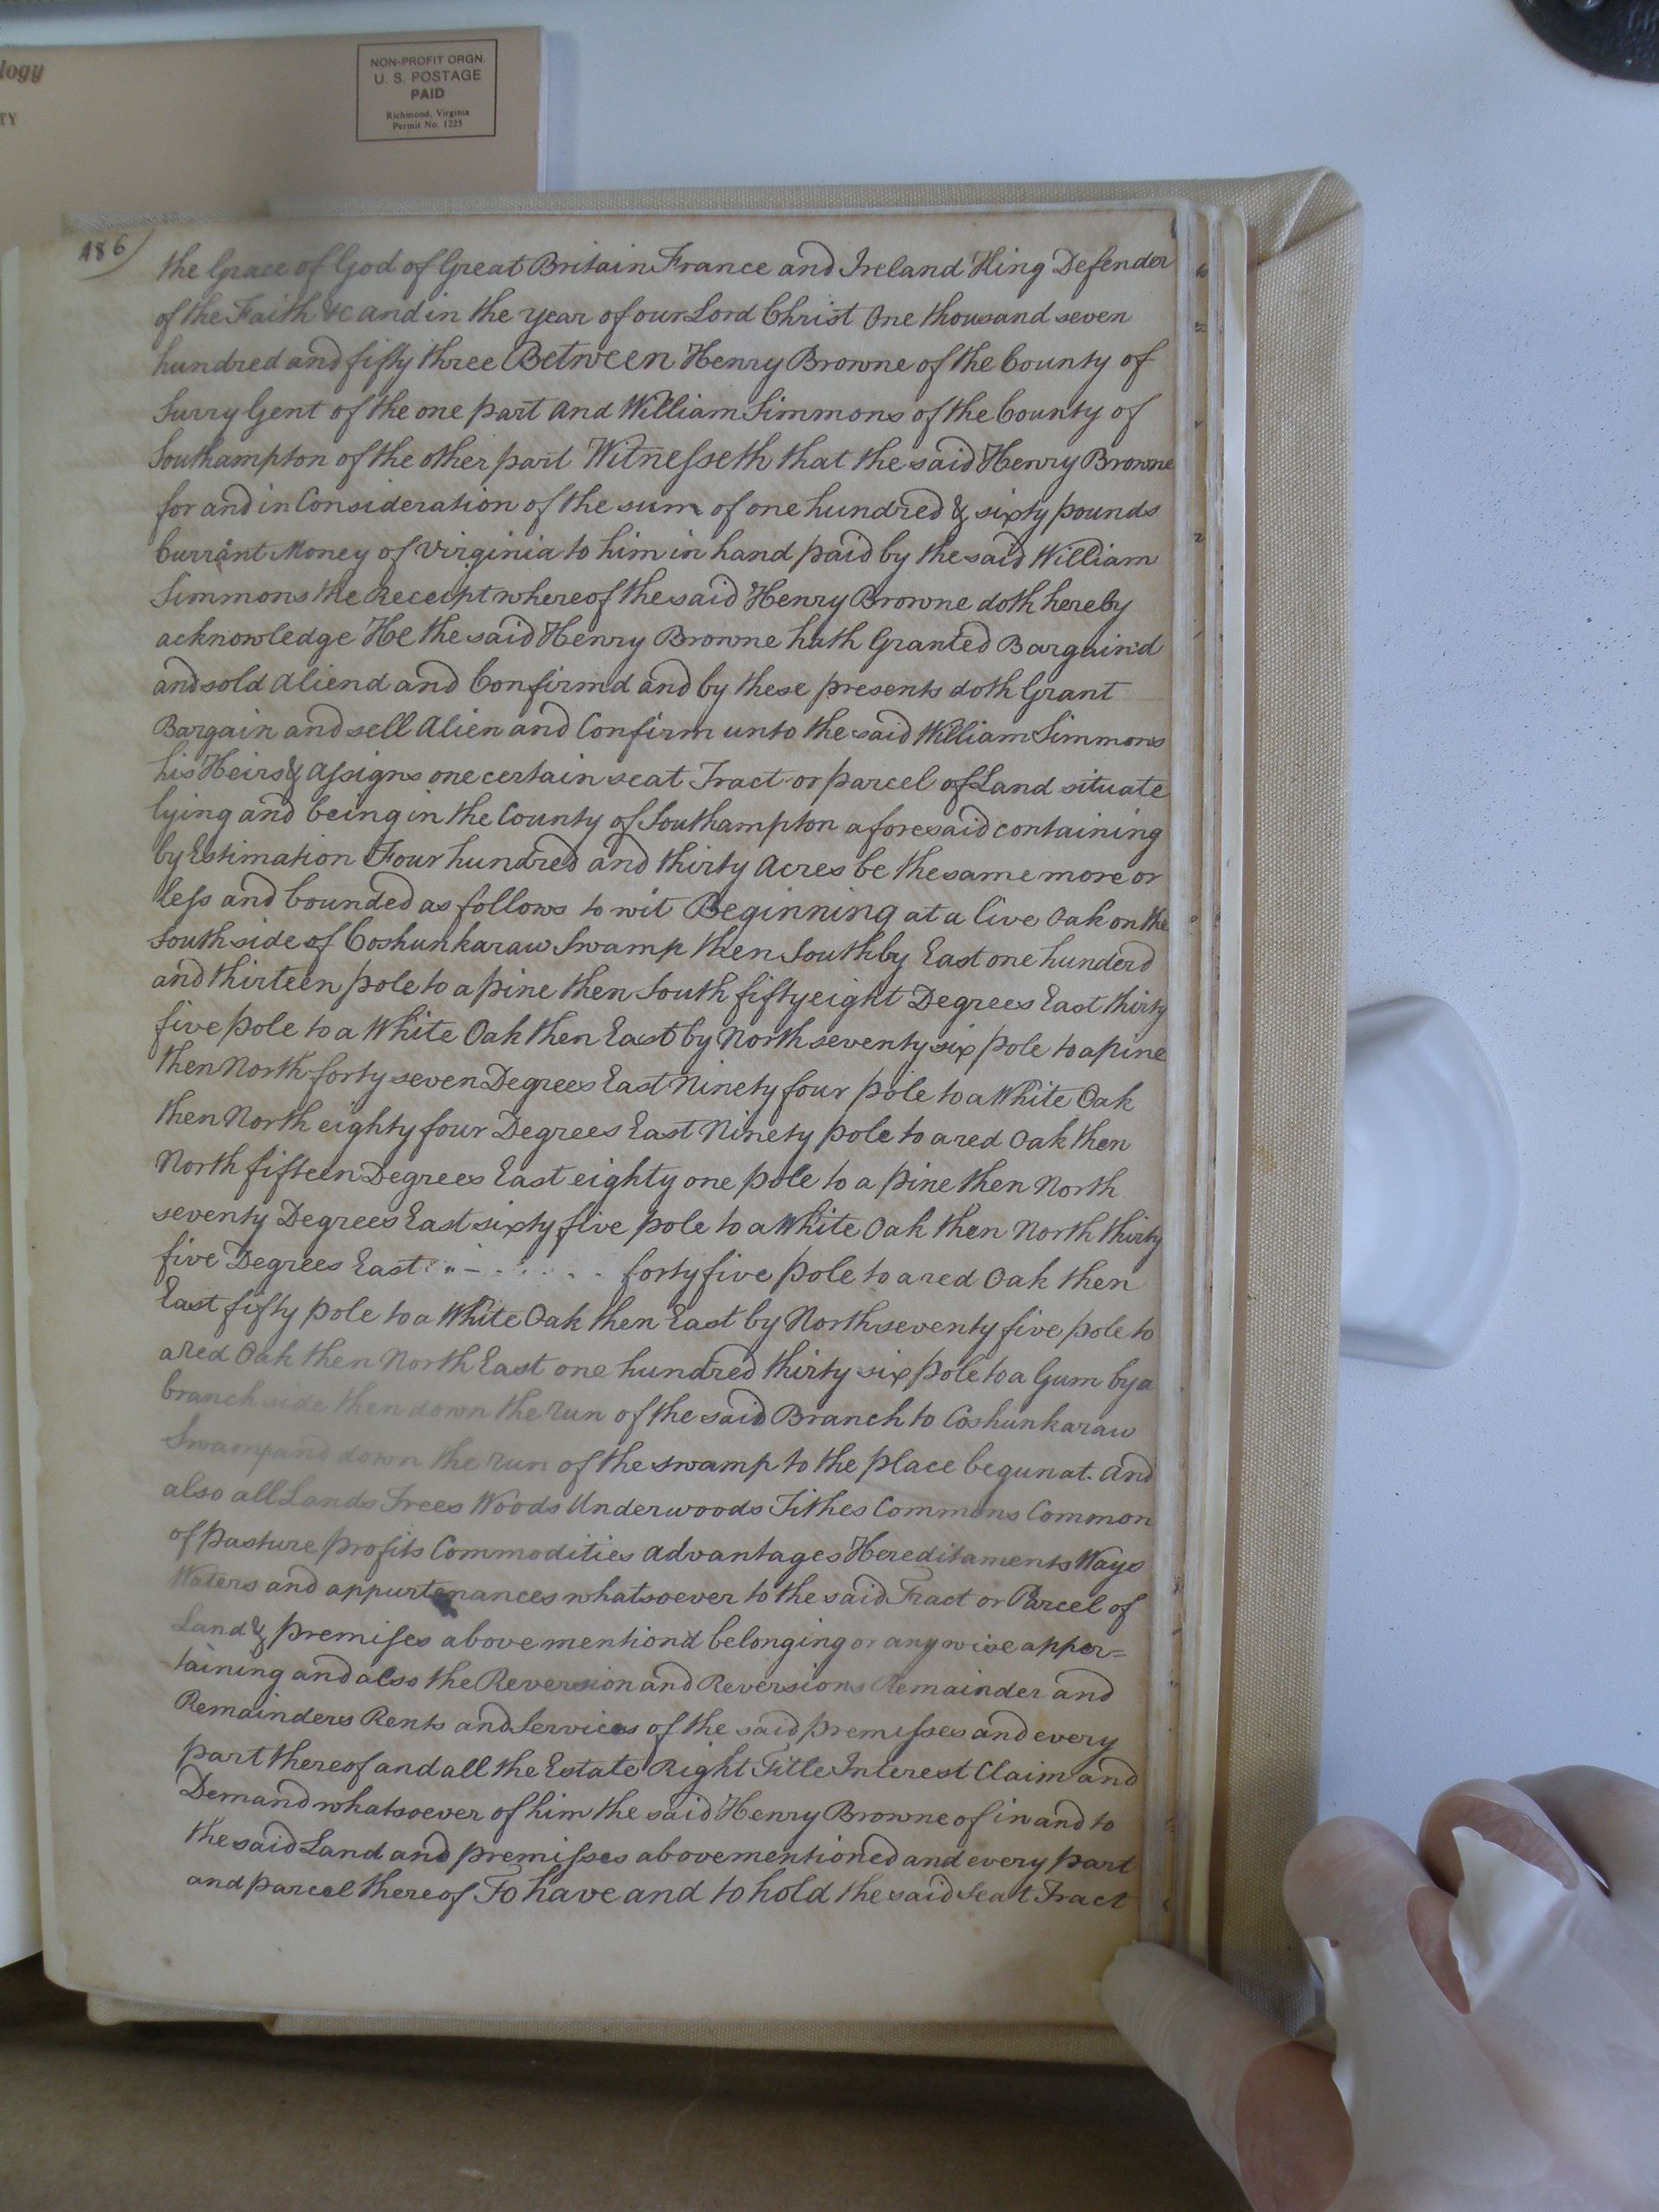 logy
TY
NON-PROFIT ORGN.
U. S. POSTAGE
PAID
Richmond, Virginia
Permit No. 1225
486
the Grace of God of Great Britain France and Ireland King Defender
of the Faith &c and in the year of our Lord Christ One thousand seven
hundred and fifty three Between Henry Browne of the County of
Surry Gent of the one part and William Simmons of the County of
Southampton of the other part Witnesseth that the said Henry Browne
for and in Consideration of the sum of one hundred & sixty pounds
Currant Money of Virginia to him in hand paid by the said William
Simmons the Receipt whereof the said Henry Browne doth hereby
acknowledge He the said Henry Browne hath Granted Bargain'd
and sold aliend and Confirmd and by these presents doth Grant
Bargain and sell Alien and Confirm unto the said William Simmons
his Heirs & Assigns one certain seat Tract or parcel of Land situate
lying and being in the County of Southampton aforesaid containing
by Estimation Four hundred and thirty Acres be the same more or
less and bounded as follows to wit Beginning at a live Oak on the
South side of Coshunkaraw Swamp then South by East one hunderd
and thirteen pole to a pine then South fifty eight Degrees East thirty
five pole to a White Oak then East by North seventy six pole to a pine
then North forty seven Degrees East Ninety four pole to a White Oak
then North eighty four Degrees East Ninety pole to a red Oak then
North fifteen Degrees East eighty one pole to a pine then North
seventy Degrees East sixty five pole to a White Oak then North thirty
five Degrees East forty five pole to a red Oak then
East fifty pole to a White Oak then East by North seventy five pole to
a red Oak then North East one hundred thirty six pole to a Gum by a
branch side then down the run of the said Branch to Coshunkaraw
Swamp and down the run of the swamp to the place begun at. And
also all Lands Trees Woods Underwoods Tithes Commons Common
of pasture profits Commodities advantages Hereditaments Ways
Waters and appurtenances whatsoever to the said Tract or Parcel of
Land & premises above mention'd belonging or any wise apper=
-taining and also the Reversion and Reversions Remainder and
Remainders Rents and Services of the said premisses and every
part thereof and all the Estate Right Title Interest Claim and
Demand whatsoever of him the said Henry Browne of in and to
the said Land and premisses abovementioned and every part
and parcel thereof To have and to hold the said Seat Tract